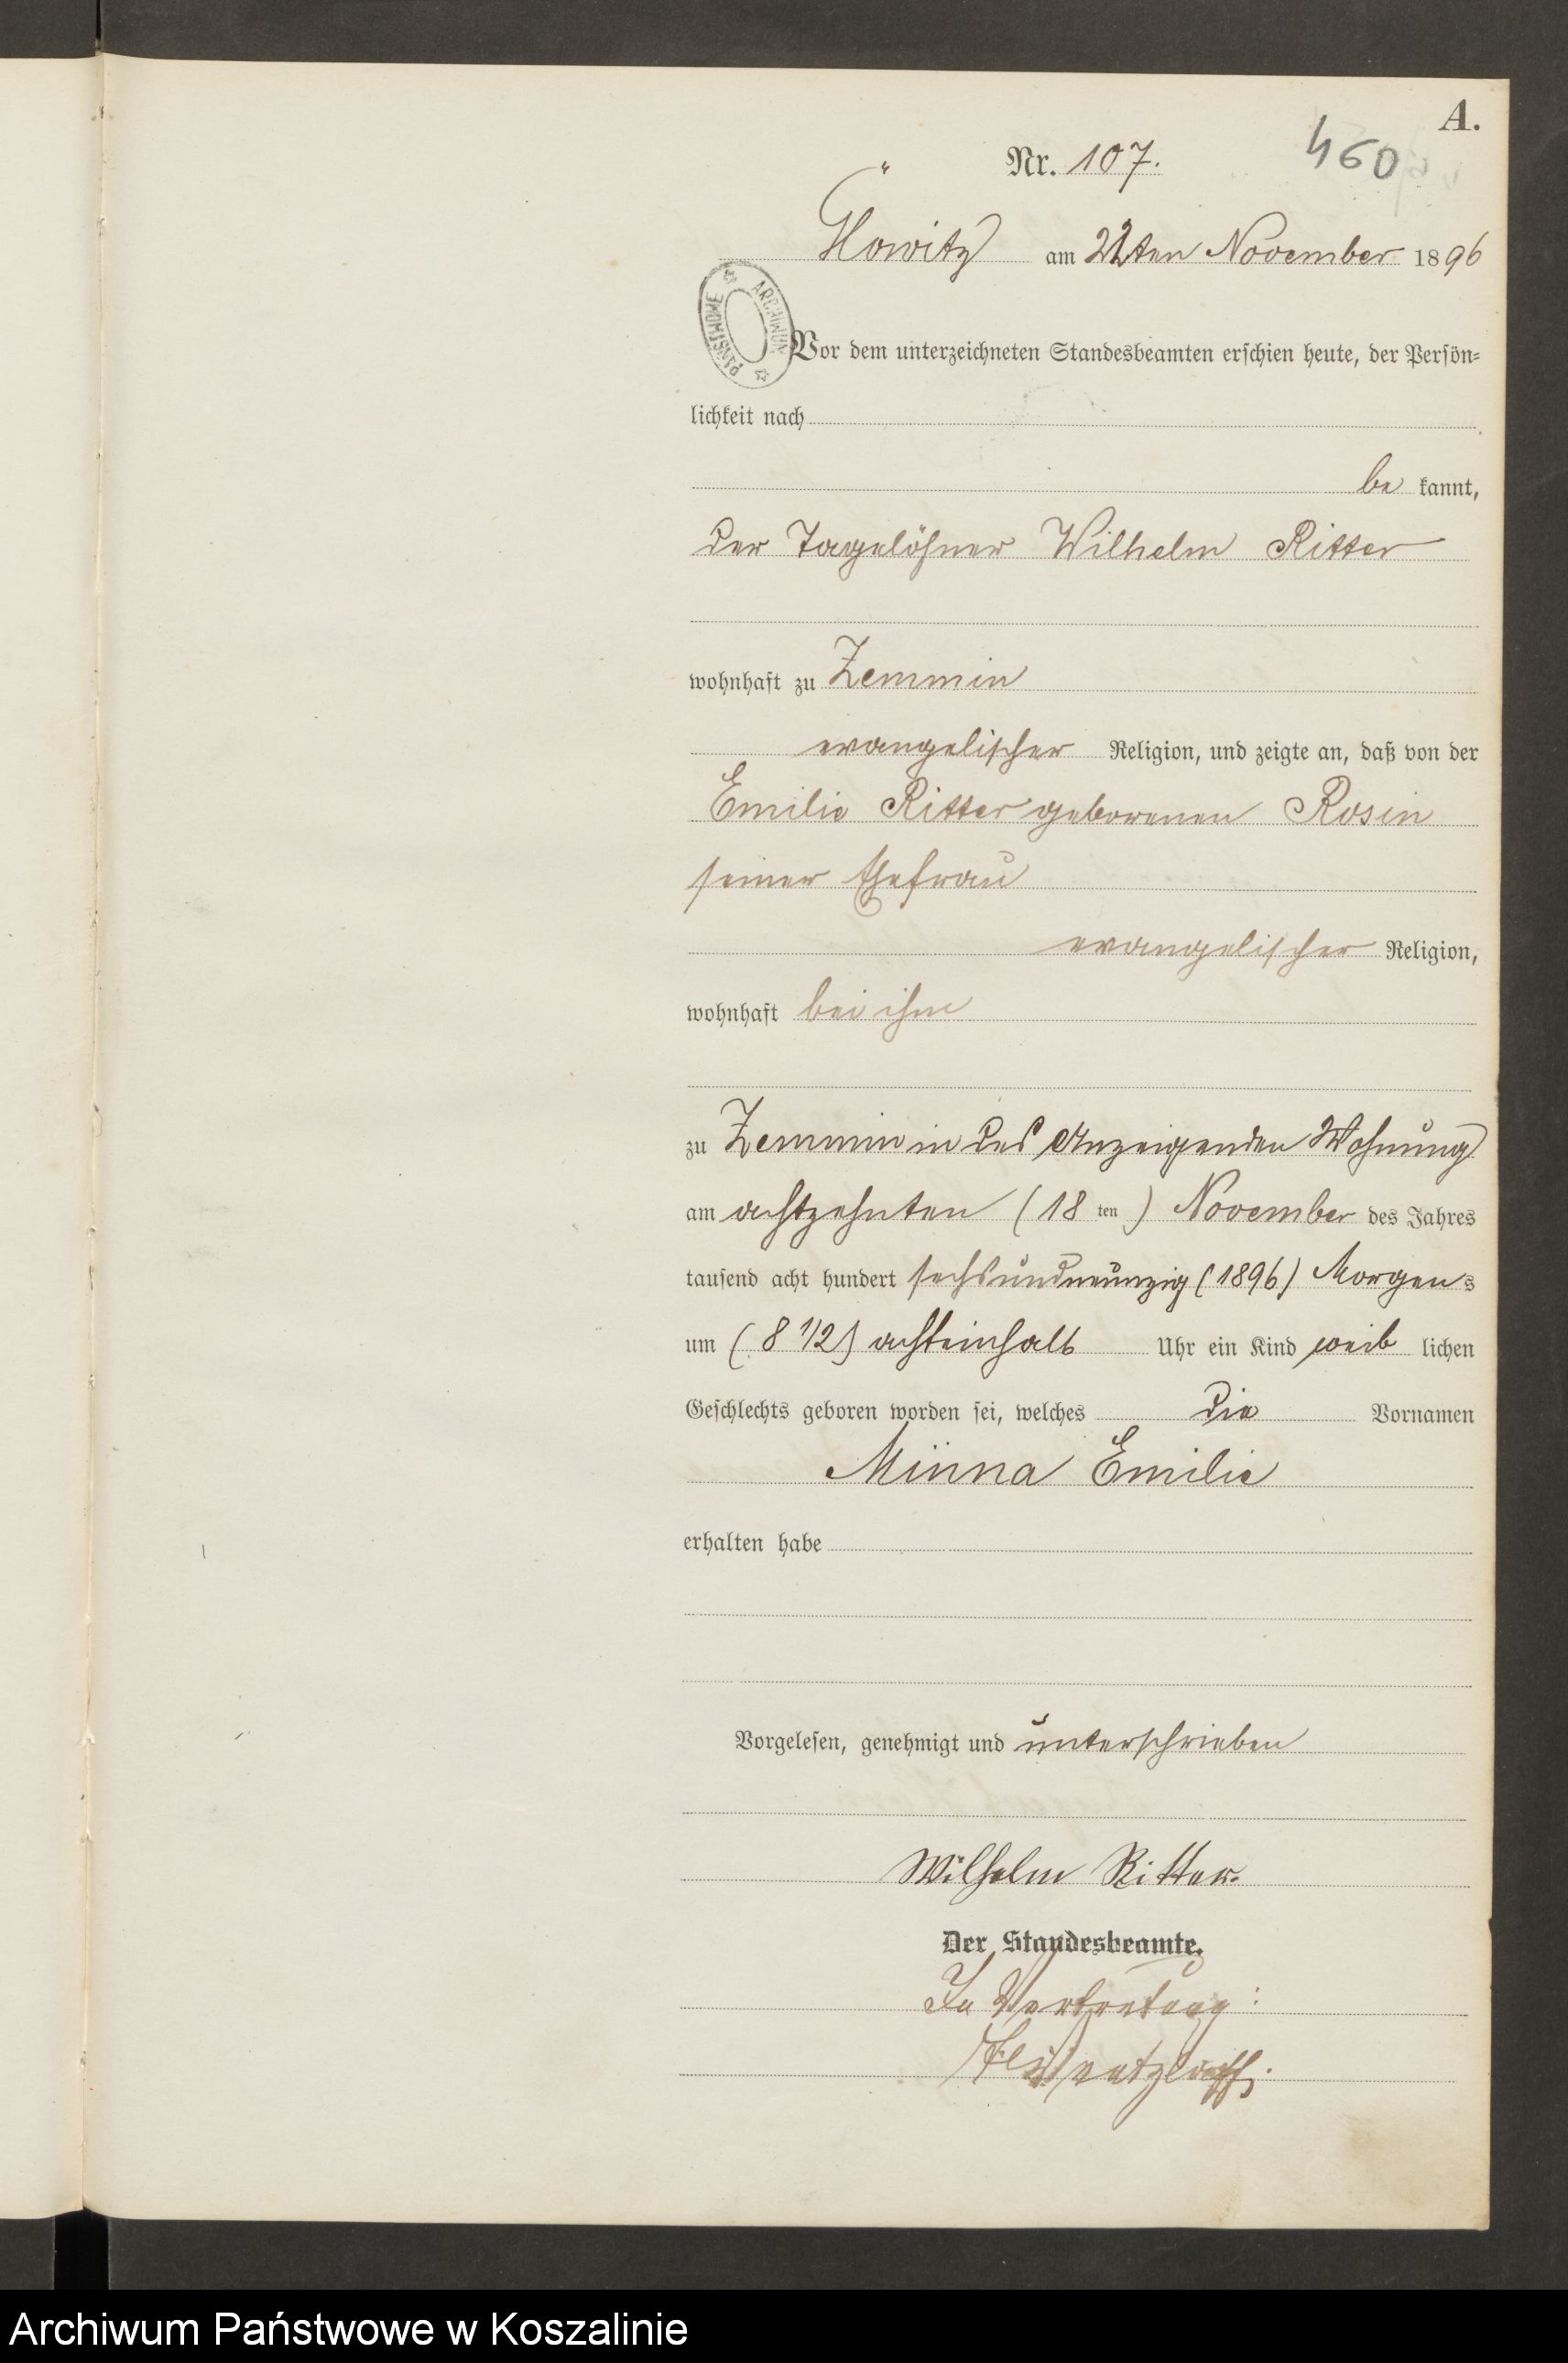 A.
Nr. 107.
460
Glowitz am 22ten November 1896
ARCHIWUM PAŃSTWOWE
Vor dem unterzeichneten Standesbeamten erschien heute, der Persön-
lichkeit nach
be kannt,
der Tagelöhner Wilhelm Ritter
wohnhaft zu Zemmin
evangelischer Religion, und zeigte an, daß von der
Emilie Ritter geborenen Rosin
seiner Ehefrau
evangelischer Religion,
wohnhaft bei ihm
zu Zemmin in des Anzeigenden Wohnung
am achtzehnten (18 ten) November des Jahres
tausend acht hundert sechsundneunzig (1896) Morgens
um (8 1/2) achteinhalb Uhr ein Kind weib lichen
Geschlechts geboren worden sei, welches die Vornamen
Minna Emilie
erhalten habe
Vorgelesen, genehmigt und unterschrieben
Wilhelm Ritter.
Der Standesbeamte.
In Vertretung:
Archiwum Państwowe w Koszalinie